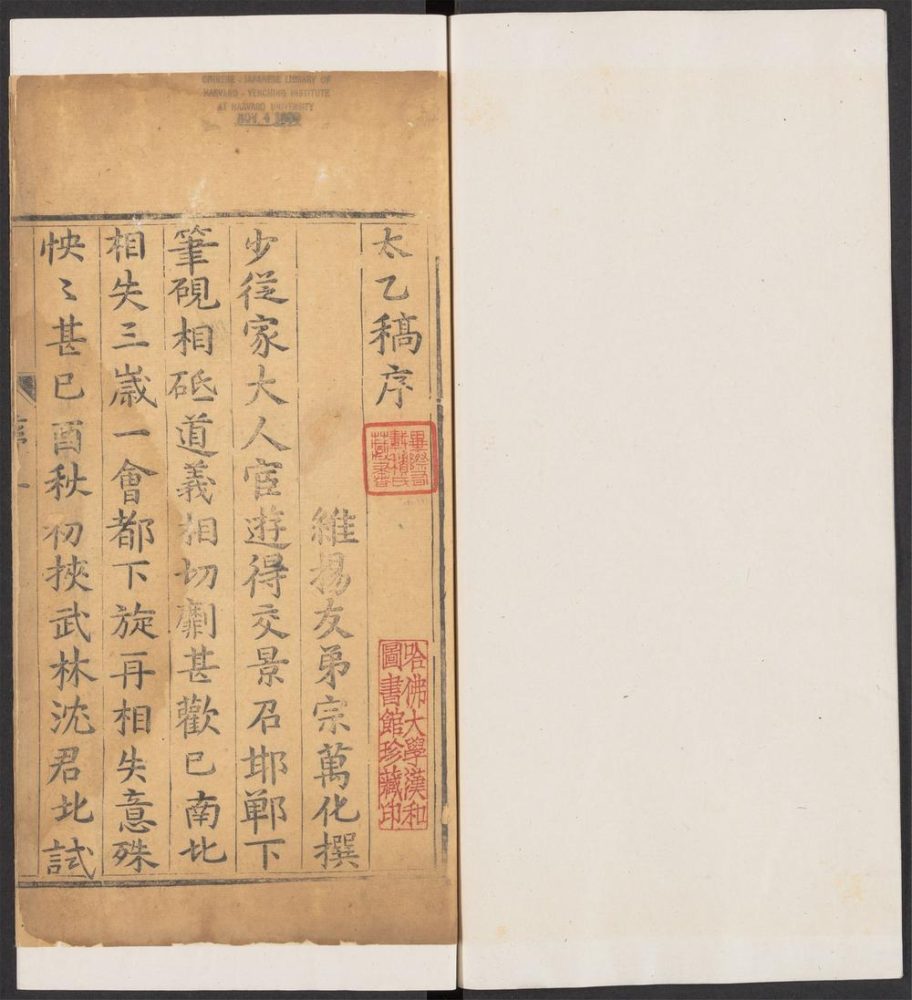 CHINESE - JAPANESE LIBRARY OF
HARVARD - YENCHING INSTITUTE
AT HARVARD UNIVERSITY
NOV 4
太乙稿序
哈佛大學漢和
圖書館珍藏印
維揚友弟宗萬化撰
少從家大人宦遊得交景召邯鄲下
筆硯相砥道義相切劘甚歡已南北
相失三歲一會都下旋再相失意殊
怏〻甚已酉秋初挾武林沈君北試
序
一